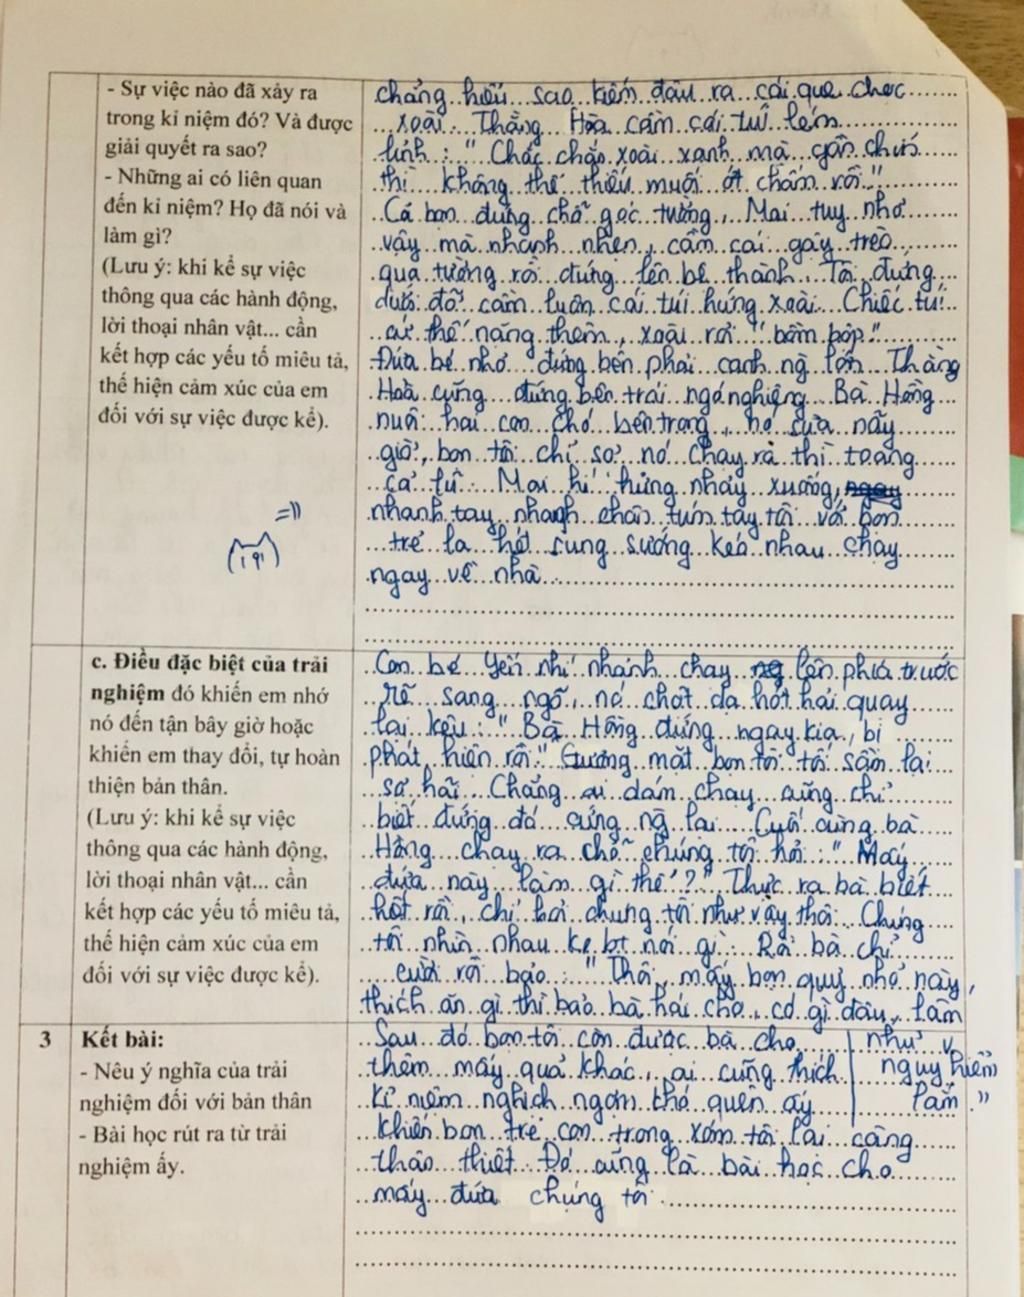 - Sự việc nào đã xảy ra
trong kỉ niệm đó? Và được
giải quyết ra sao?
- Những ai có liên quan
đến kỉ niệm? Họ đã nói và
làm gì?
(Lưu ý: khi kể sự việc
thông qua các hành động,
lời thoại nhân vật... cần
kết hợp các yếu tố miêu tả,
thể hiện cảm xúc của em
đối với sự việc được kể).
chẳng hiểu sao kiếm đâu ra cái que chọc
xoài. Thằng Hòa cầm cái túi lém
lỉnh: "Chắc chắn xoài xanh mà gần chín
thì không thể thiếu muối ớt chấm rồi"
Cả bọn đứng chỗ góc tường, Mai tuy nhỏ
vậy mà nhanh nhẹn, cầm cái gậy trèo
qua tường rồi đứng lên bê thành. Tôi đứng
dưới đỡ cầm luôn cái túi hứng xoài. Chiếc túi
cứ thế nặng thêm, xoài rơi "bồm bộp"
Đứa bé nhỏ đứng bên phải canh ng lớn. Thằng
Hoà cũng đứng bên trái ngó nghiêng. Bà Hồng
nuôi hai con chó bên trong, hé cửa nãy
giờ, bọn tôi chỉ sợ nó chạy ra thì toang
cả lũ. Mai hí hửng nhảy xuống,
nhanh tay nhanh chân túm tay tôi với bọn
trẻ la hét sung sướng kéo nhau chạy
ngay về nhà
c. Điều đặc biệt của trải
nghiệm đó khiến em nhớ
nó đến tận bây giờ hoặc
khiến em thay đổi, tự hoàn
thiện bản thân.
(Lưu ý: khi kể sự việc
thông qua các hành động,
lời thoại nhân vật... cần
kết hợp các yếu tố miêu tả,
thể hiện cảm xúc của em
đối với sự việc được kể).
Con bé Yến nhí nhảnh chạy lên phía trước
rẽ sang ngõ, nó chột dạ hớt hải quay
lại kêu: "Bà Hồng đứng ngay kia, bị
phát hiện rồi" Gương mặt bọn tôi tối sầm lại
sợ hãi. Chẳng ai dám chạy cũng chỉ
biết đứng đó cứng ng lại. Cuối cùng bà
Hồng chạy ra chỗ chúng tôi hỏi: "Mấy
đứa này làm gì thế?" Thực ra bà biết
hết rồi, chỉ hỏi chúng tôi như vậy thôi. Chúng
tôi nhìn nhau k bt nói gì. Rồi bà chỉ
cười rồi bảo: "Thôi, mấy bọn quỷ nhỏ này,
thích ăn gì thì bảo bà hái cho, có gì đâu, làm
như v
nguy hiểm
lắm."
3 Kết bài:
- Nêu ý nghĩa của trải
nghiệm đối với bản thân
- Bài học rút ra từ trải
nghiệm ấy.
Sau đó bọn tôi còn được bà cho
thêm mấy quả khác, ai cũng thích
Kỉ niệm nghịch ngợm khó quên ấy
khiến bọn trẻ con trong xóm tôi lại càng
thân thiết. Đó cũng là bài học cho
mấy đứa chúng tôi